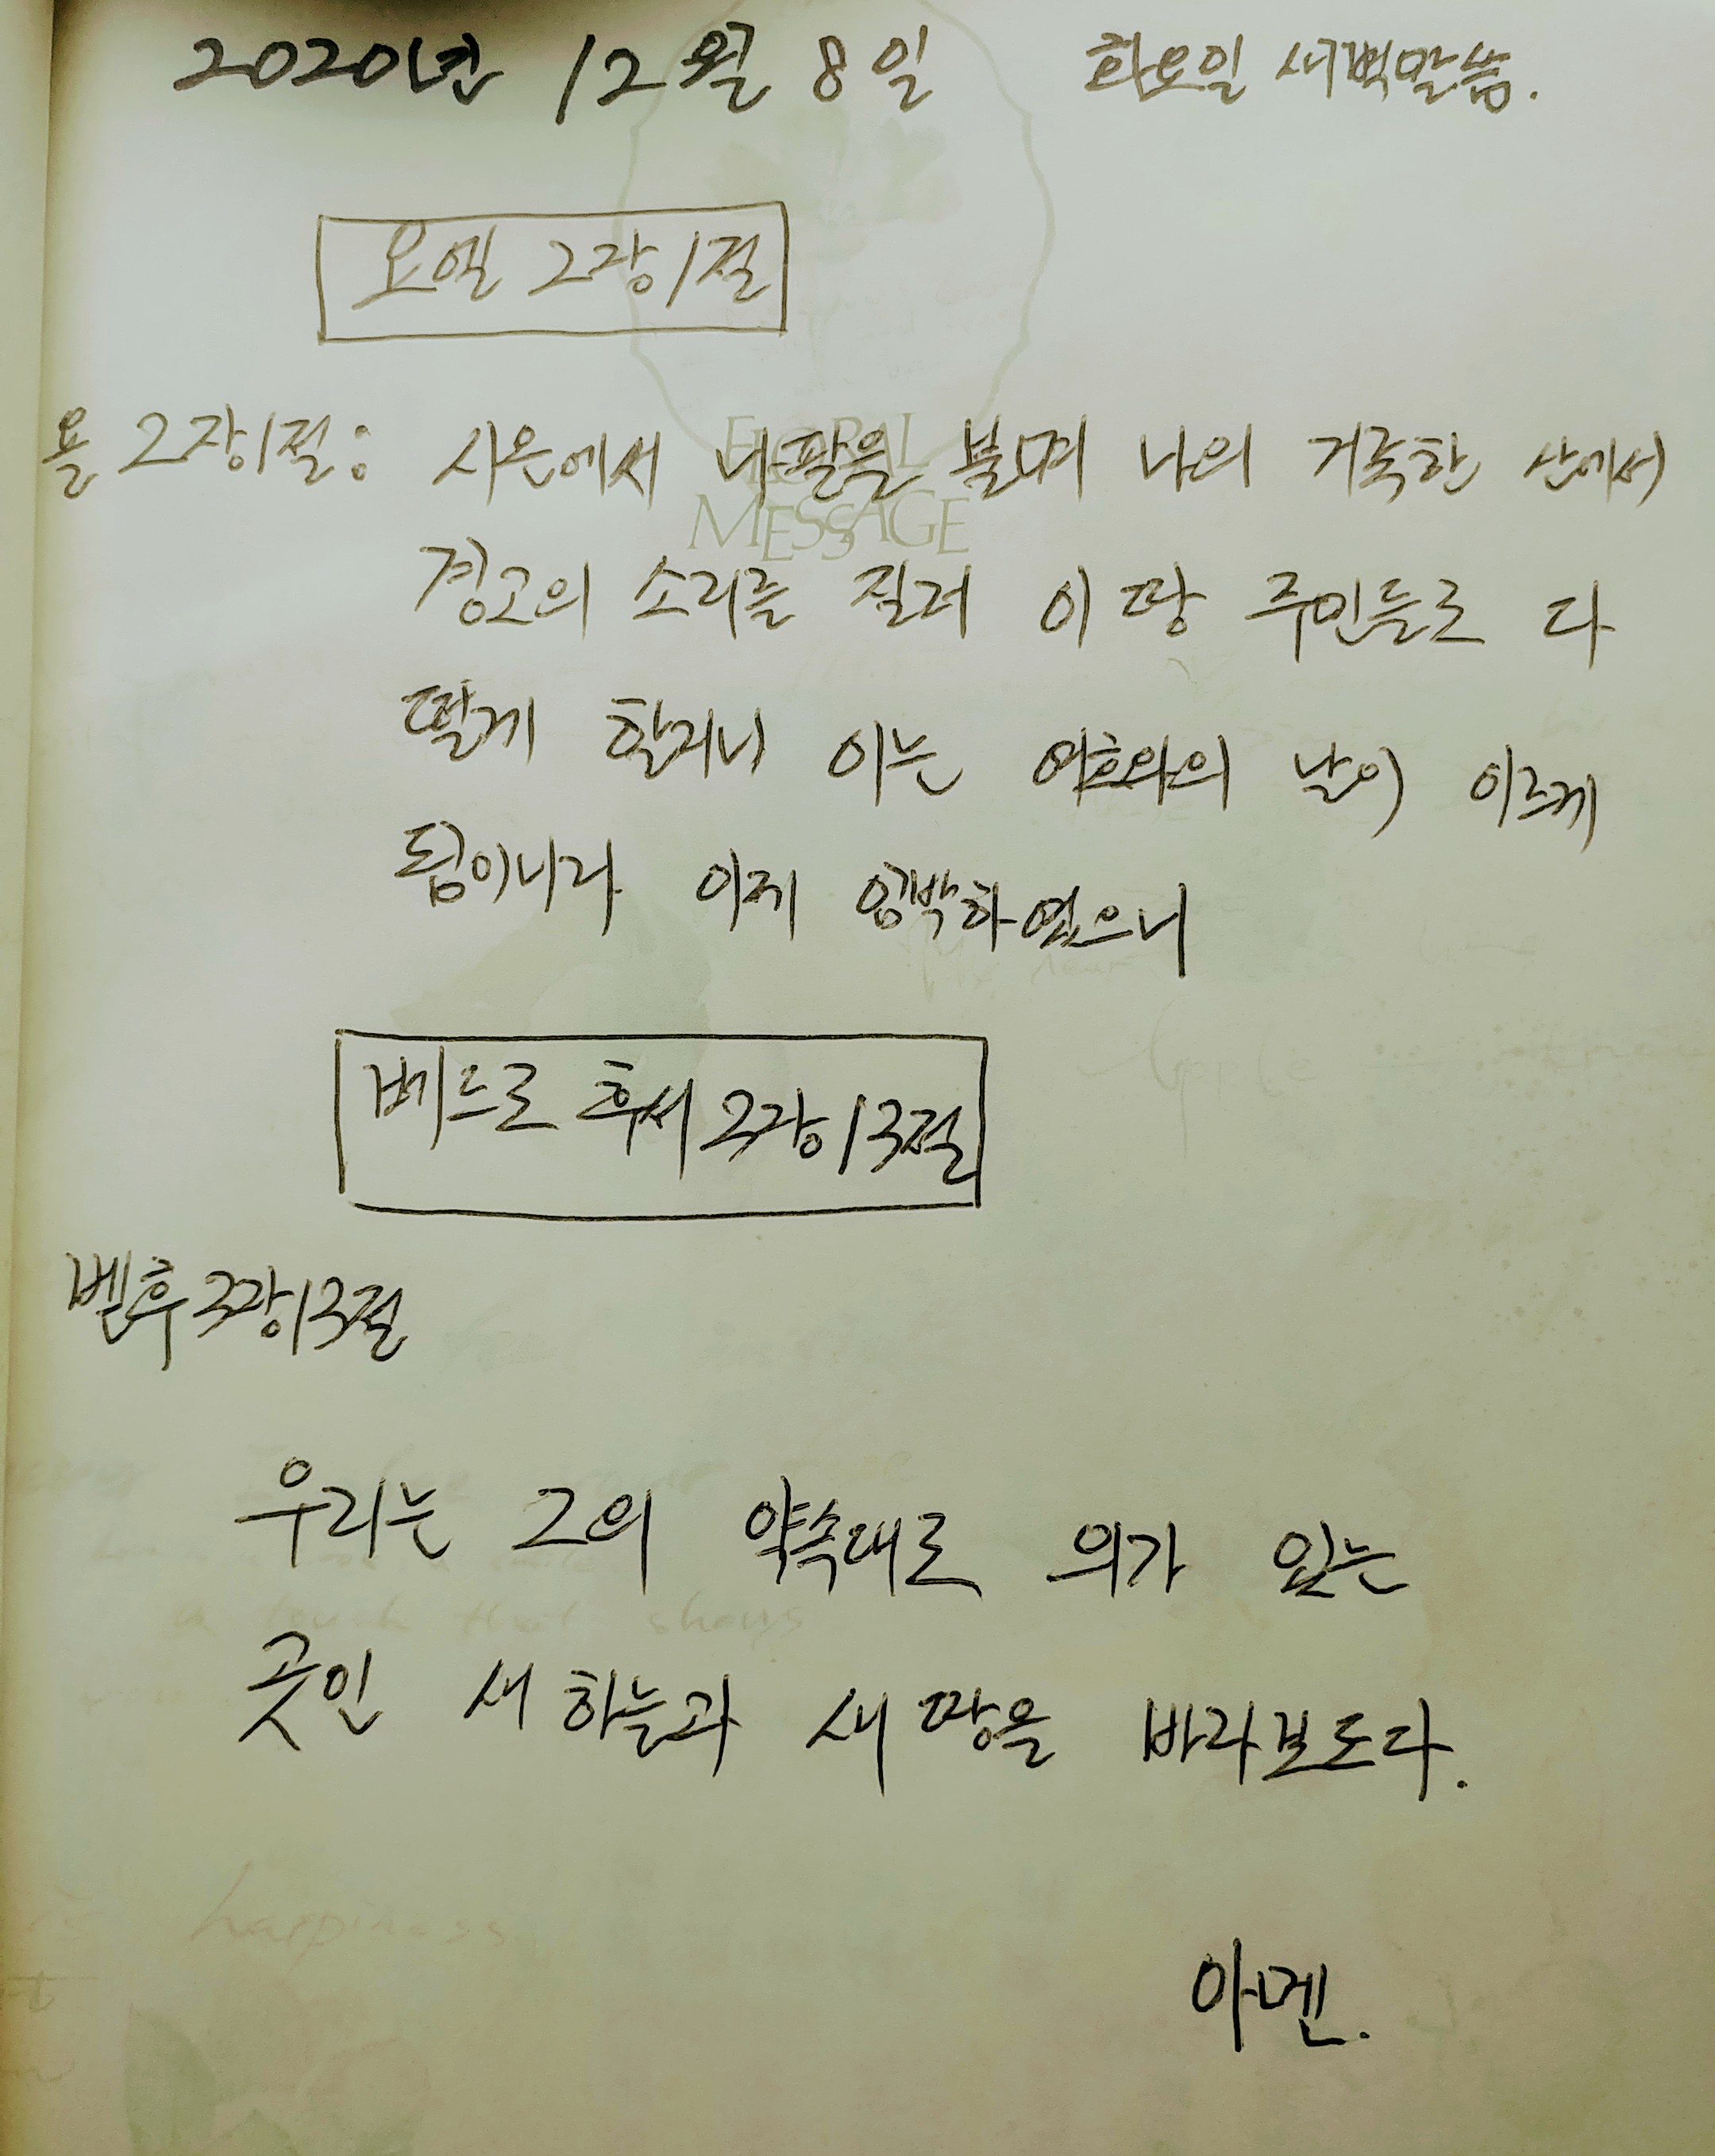 2020년 12월 8일 화요일 새벽말씀.
요엘 2장1절
욜 2장1절: 시온에서 나팔을 불며 나의 거룩한 산에서
FLORAL
MESSAGE
경고의 소리를 질러 이 땅 주민들로 다
떨게 할거니 이는 여호와의 날이 이르게
됨이니라 이제 임박하였으니
베드로 후서 3장13절
벧후 3장13절
우리는 그의 약속대로 의가 있는
곳인 새 하늘과 새 땅을 바라보도다.
happiness
아멘.